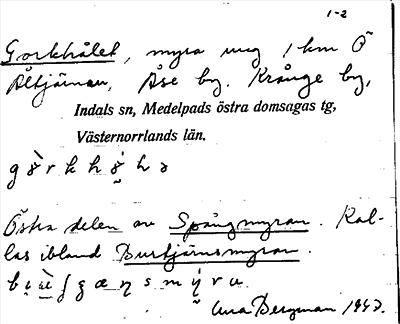 1-2
Gorkhålet, myra ung 1 km Ö
Åltjärnen, Åse by. Krånge by,
Indals sn, Medelpads östra domsagas tg,
Västernorrlands län.
Östra delen av Spångmyran. Kal-
las ibland Burtjärnsmyran.
Bergman 1943.